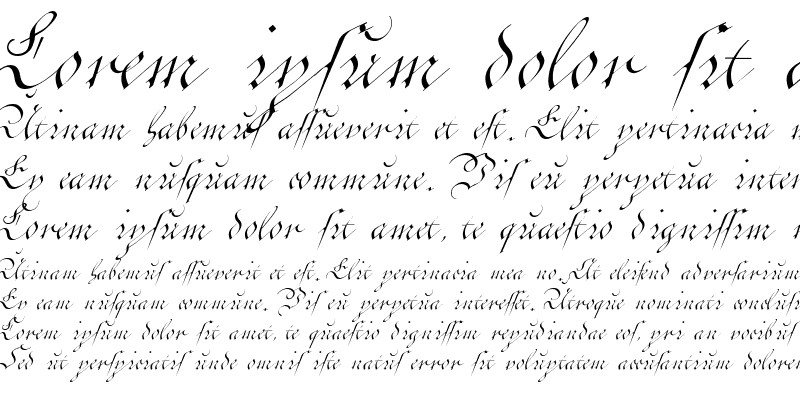 Lorem ipsum dolor sit a
Utinam habemus assueverit et est. Elit pertinacia m
Ey eam nusquam commune. Vis eu perpetua inter
Lorem ipsum dolor sit amet, te quaestio dignissim r
Utinam habemus assueverit et est. Elit pertinacia mea no. At eleifend adversarium
Ey eam nusquam commune. Vis eu perpetua interesset. Utroque nominati conclus
Lorem ipsum dolor sit amet, te quaestio dignissim repudiandae eos, pri an vocibus
Sed ut perspiciatis unde omnis iste natus error sit voluptatem accusantium dolorem